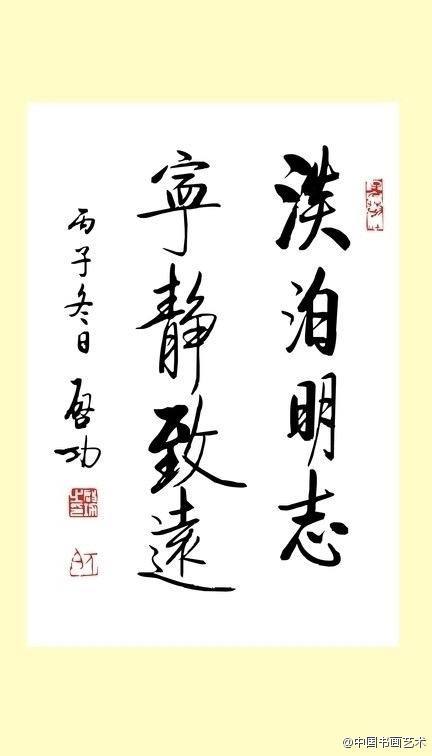 淡泊明志
寧靜致遠
丙子冬日
啓功
@中国书画艺术